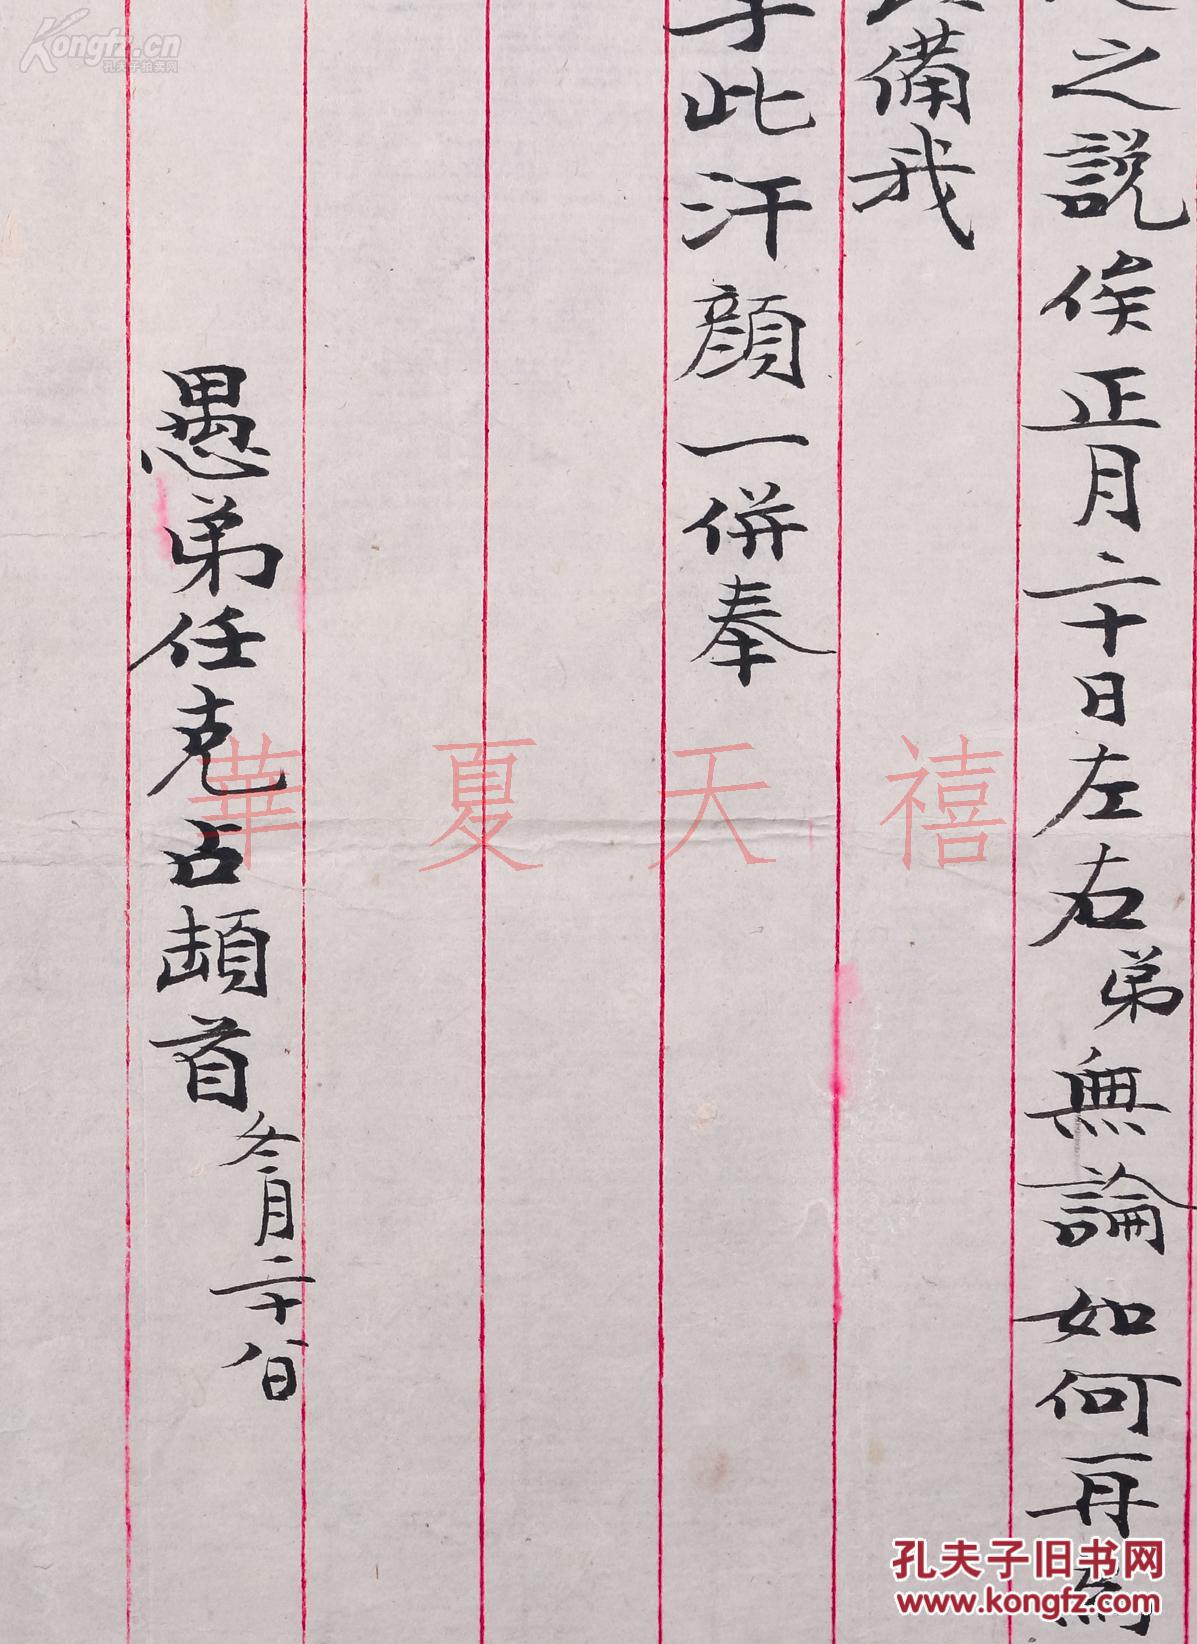 之説俟正月二十日左右弟無論如何再為
備我
此汗顔一併奉
愚弟任克占頓首冬月二十八日
華夏天禧
Kongfz.cn
孔夫子拍卖网
孔夫子旧书网
www.kongfz.com